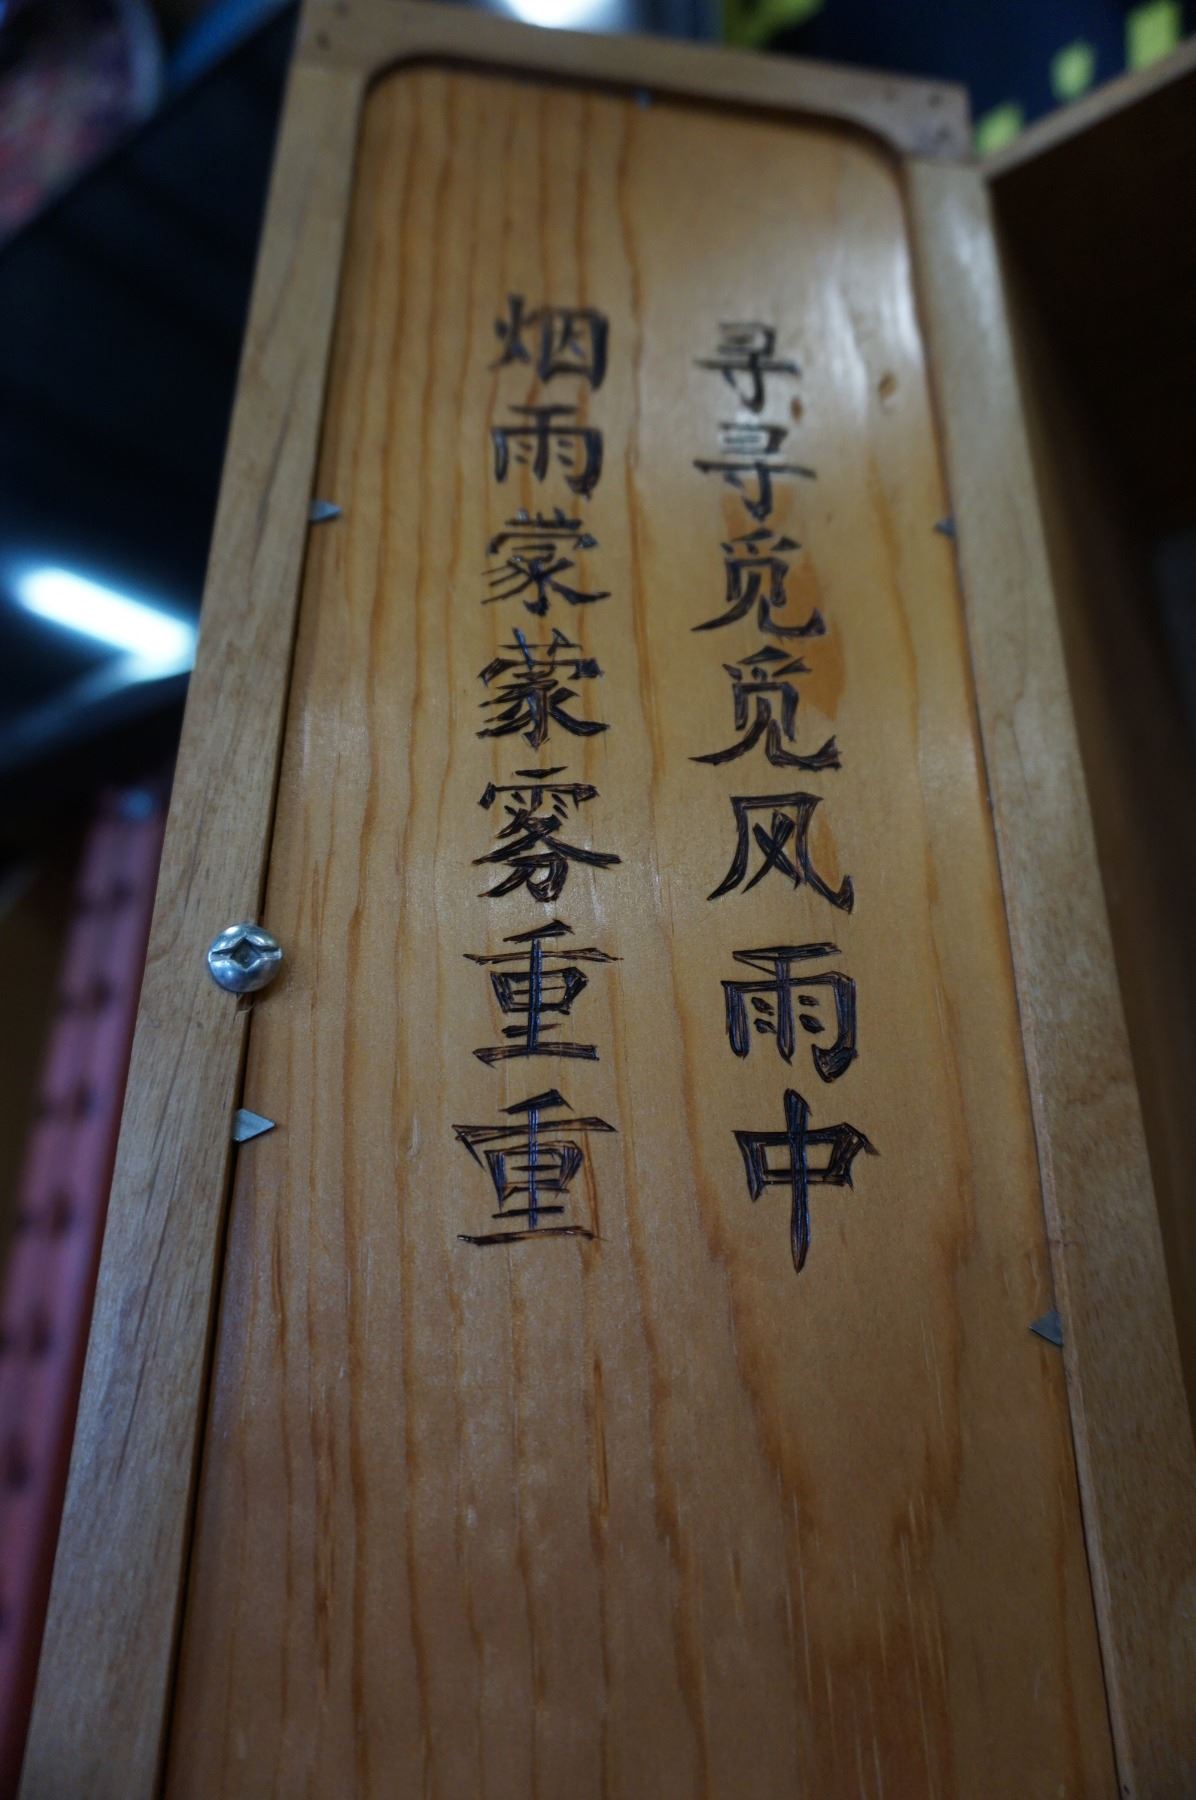 寻寻觅觅风雨中
烟雨蒙蒙雾重重